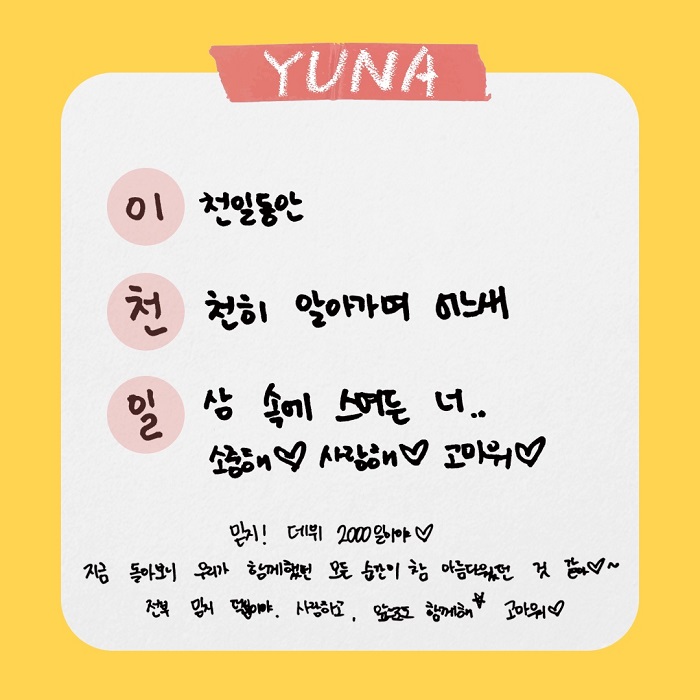 YUNA
이 천일동안
천 천히 알아가며 어느새
일 상 속에 스며든 너..
소중해♡ 사랑해♡ 고마워♡
믿지! 데뷔 2000일이야♡
지금 돌아보니 우리가 함께했던 모든 순간이 참 아름다웠던 것 같아♡~
전부 믿지 덕분이야. 사랑하고, 앞으로도 함께해 고마워♡